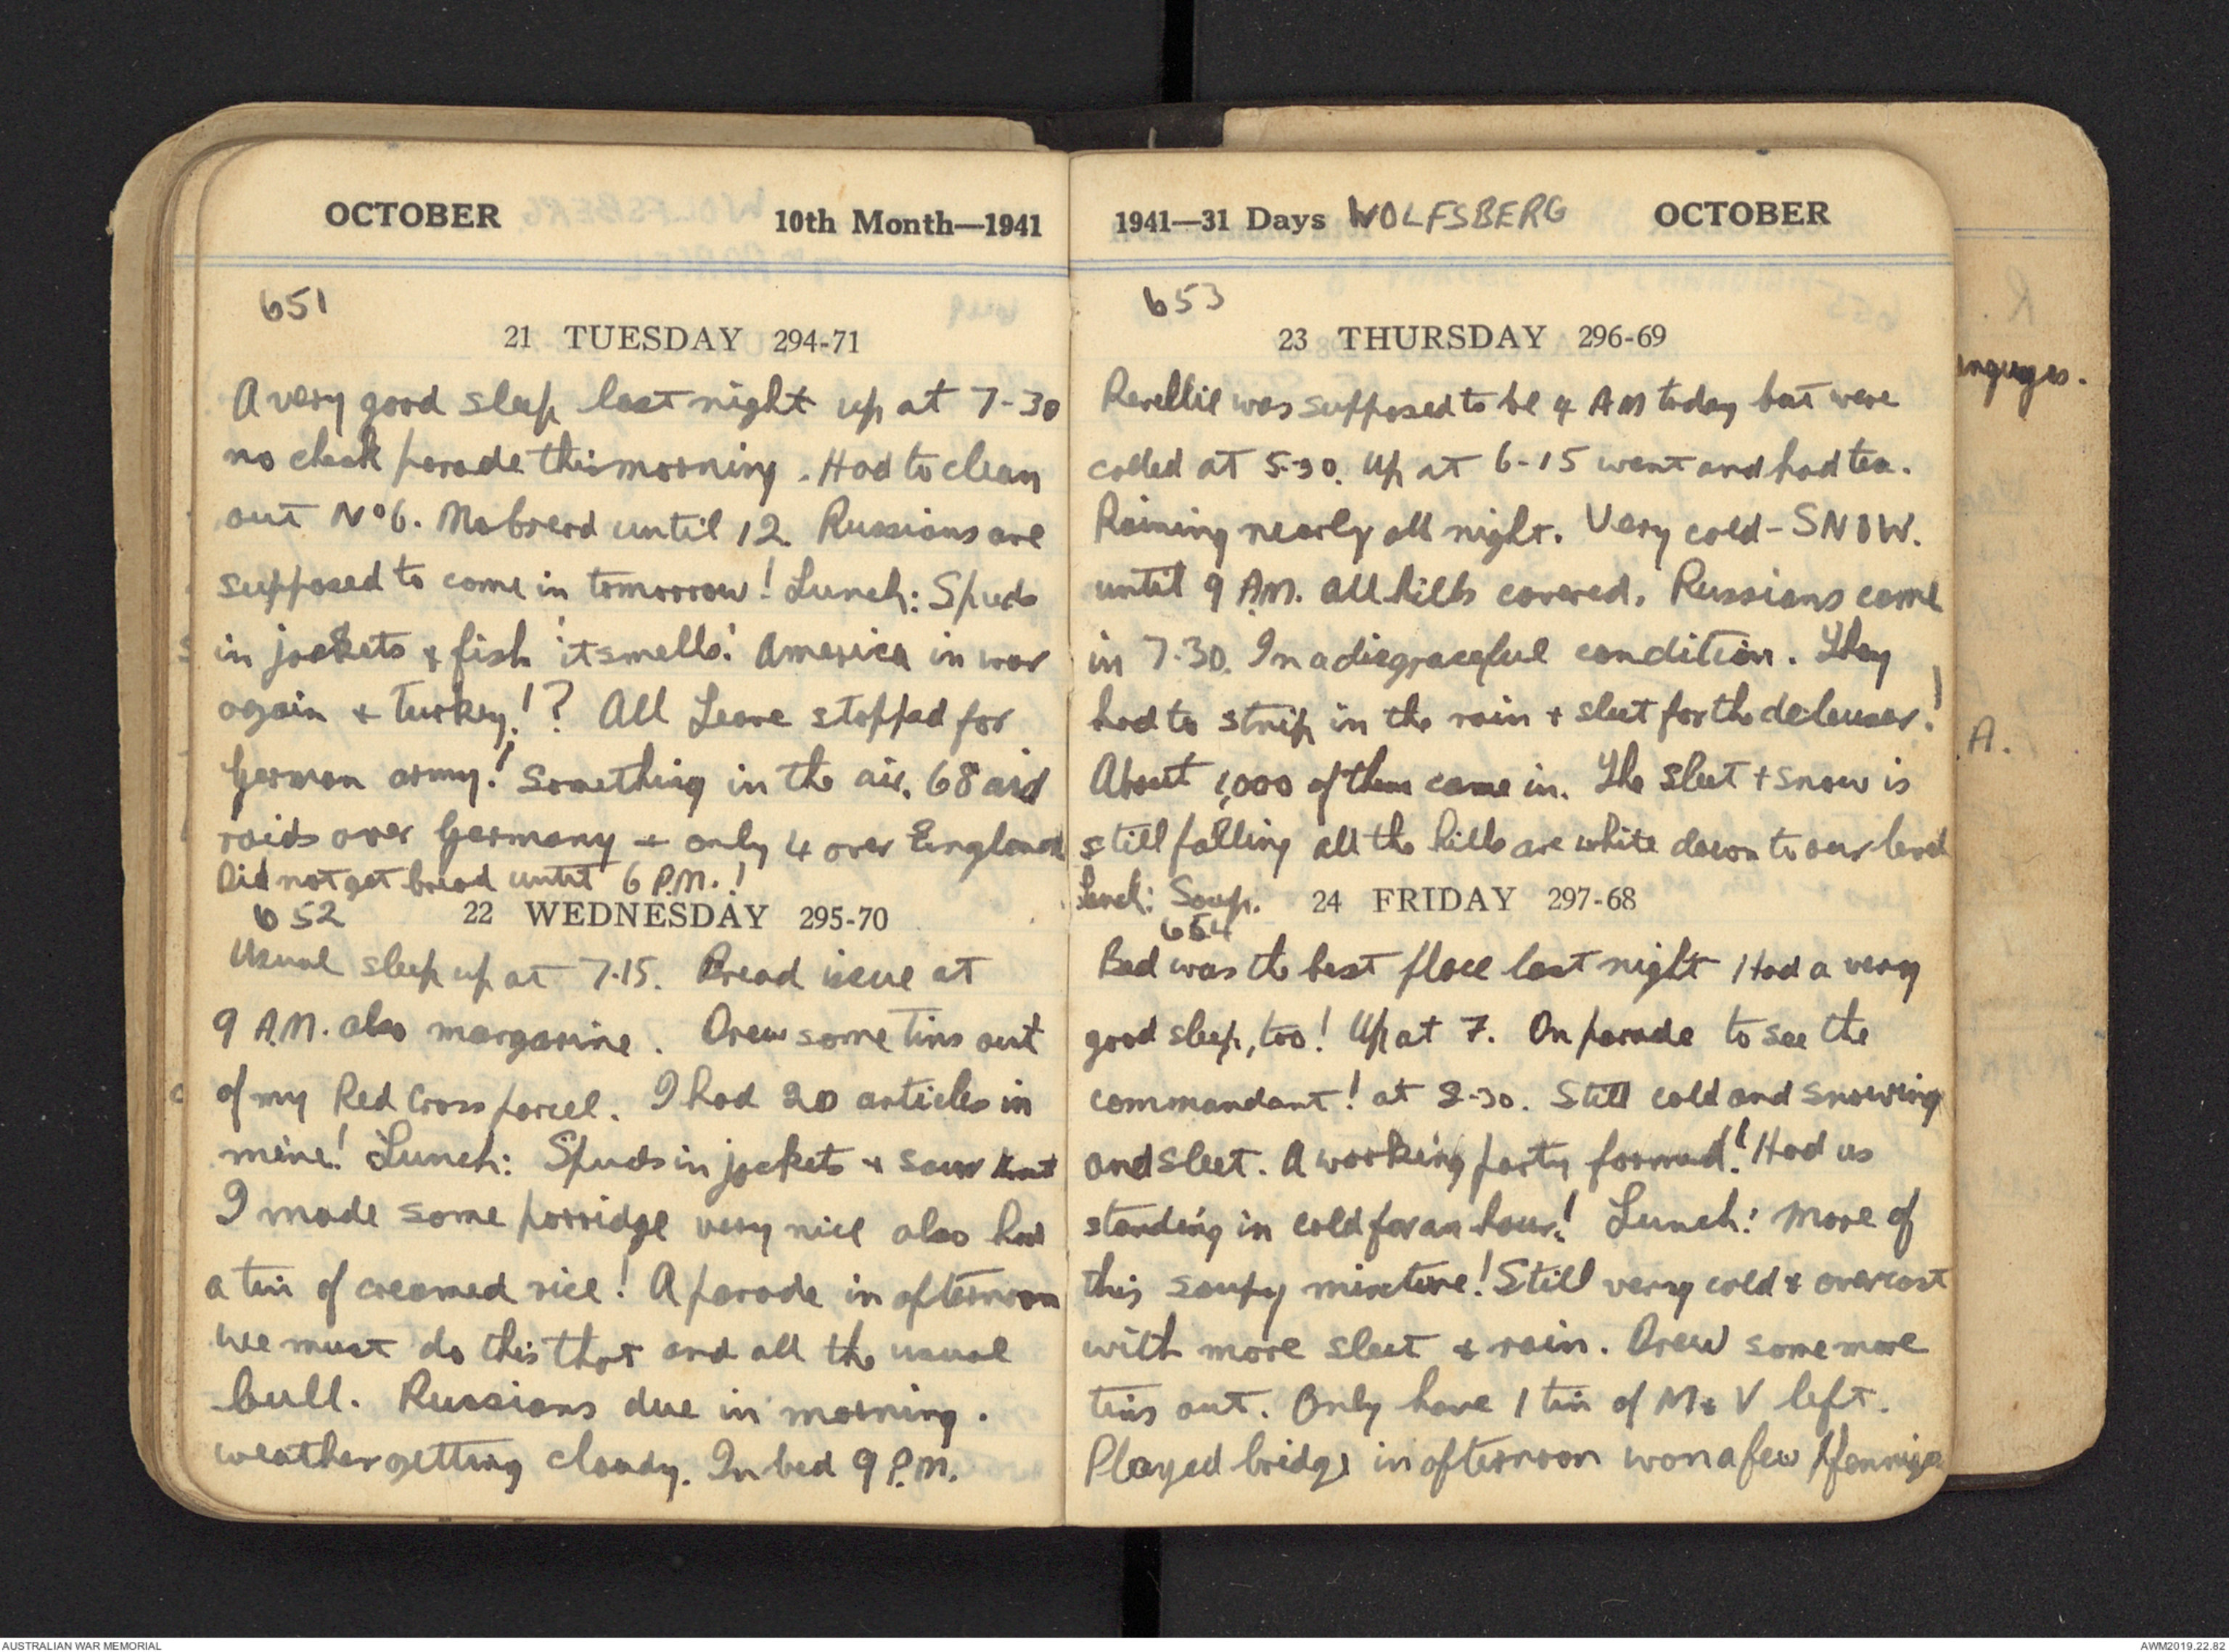 OCTOBER 10th Month—1941
651
21 TUESDAY 294-71
A very good sleep last night up at 7-30
no check parade this morning. Had to clean
out No 6. No bread until 12. Russians are
supposed to come in tomorrow! Lunch: Spuds
in jackets & fish 'it smells'! America in war
again & Turkey!? All Leave stopped for
German army! Something in the air. 68 aid
raids over Germany & only 4 over England
Did not get bread until 6 P.M.!
652
22 WEDNESDAY 295-70
Usual sleep up at 7.15. Bread issue at
9 A.M. also margarine. Drew some Tins out
of my Red Cross parcel. I had 20 articles in
mine! Lunch: Spuds in jackets & sour kraut
I made some porridge very nice also had
a tin of creamed rice! A parade in afternoon
we must do this that and all the usual
bull. Russians due in morning.
weather getting cloudy. In bed 9 P.M.
1941—31 Days WOLFSBERG OCTOBER
653
23 THURSDAY 296-69
Revellie was supposed to be 4 AM today but were
called at 5-30. Up at 6-15 went and had tea.
Raining nearly all night. Very cold - SNOW.
until 9 A.M. all hills covered. Russians came
in 7.30. In a disgraceful condition. They
had to strip in the rain & sleet for the delouser!
About 1,000 of them came in. The sleet & snow is
still falling all the hills are white down to our level
Lunch: Soup. 24 FRIDAY 297-68
654
Bed was the best place last night Had a very
good sleep, too! Up at 7. On parade to see the
commandant! at 8-30. Still cold and snowing
and sleet. A working party formed! Had us
standing in cold for an hour! Lunch: more of
this soupy mixture! Still very cold & overcast
with more sleet & rain. Drew some more
tins out. Only have 1 tin of M & V left.
Played bridge in afternoon won a few Pfennigs
A.
AUSTRALIAN WAR MEMORIAL
AWM2019.22.82